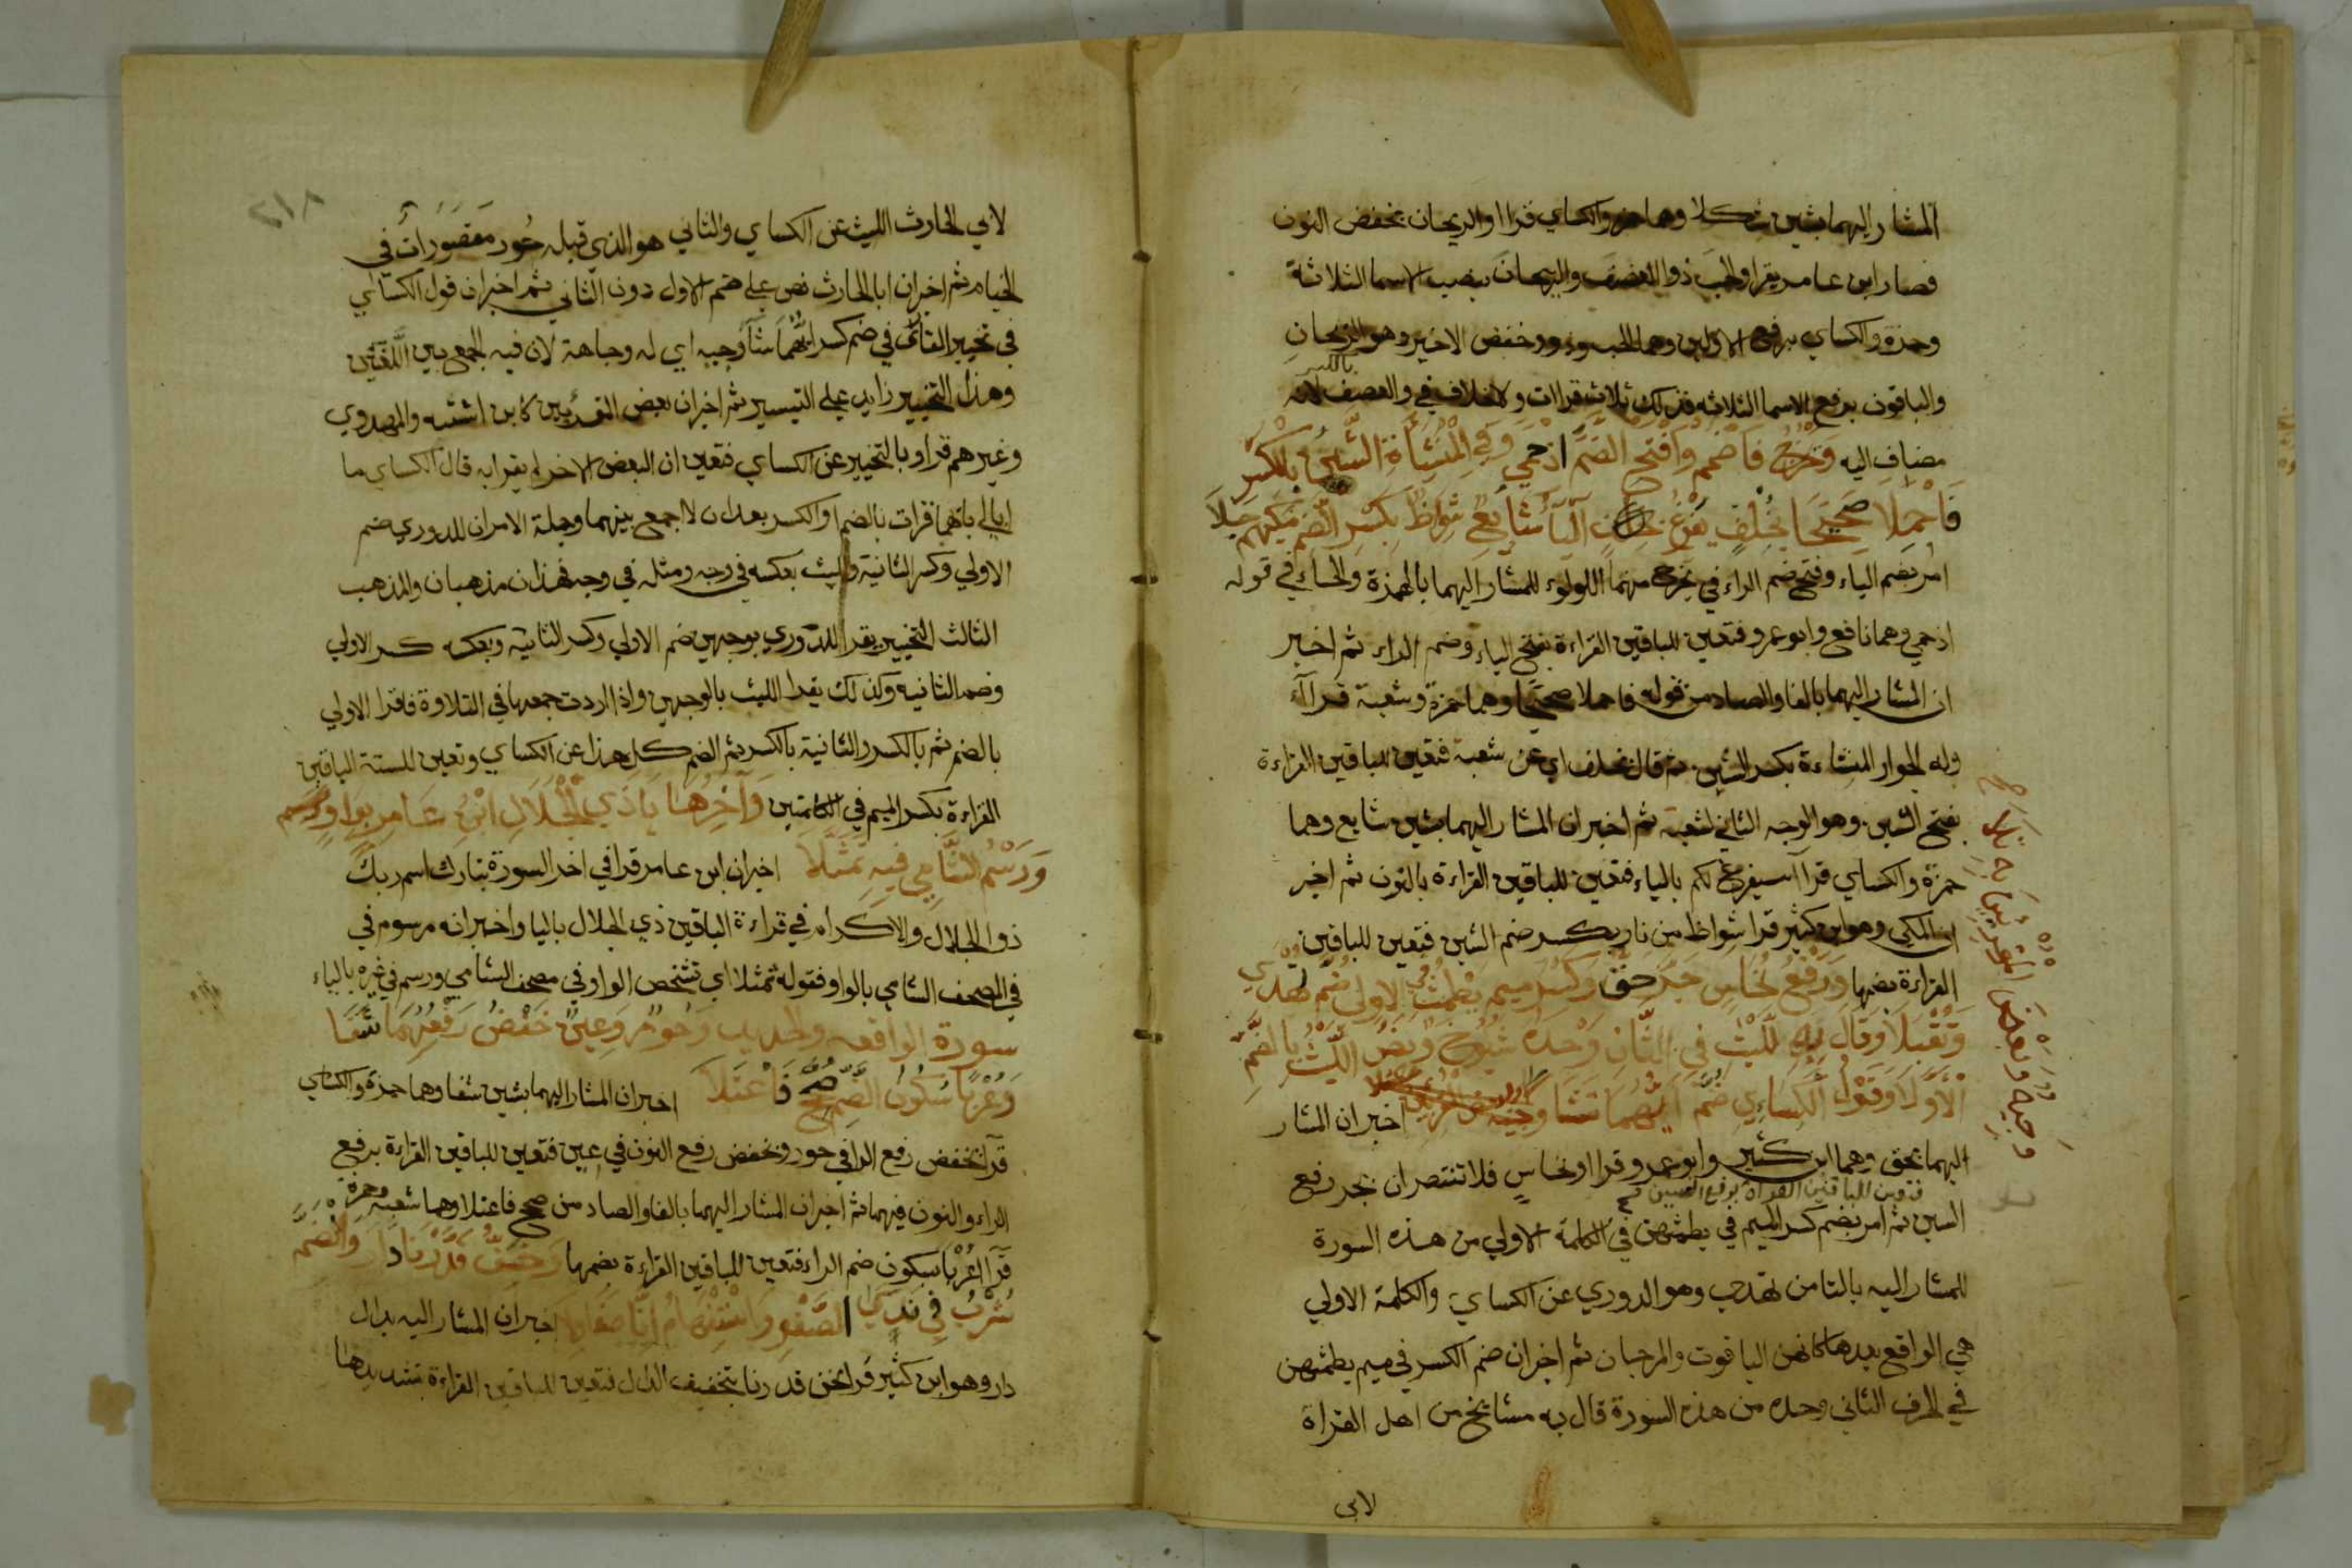 المشار اليهما بشين شكلا وهما حمزه والكساي قرا والريحان بخفض النون
فصار ابن عامر يقرا والحب ذا العصف والريحان بنصب الاسما الثلاثة
وحمزة والكساي برفع الاولين وهما الحب وذو وخفض الاخير وهو الريحان
والباقون برفع الاسما الثلاثه فذلك ثلاث قراات ولا خلاف في والعصف لانه
بالكسر
مضاف اليه وَيَخْرُجُ فَاضْمُم وَافْتَحِ الضَّمَّ اذ حمي وَفِي الْمُنْشَآتُ الشِّينُ بِالْكَسْرِ
فَاحْمِلَا صَحِيحًا بِخُلْفٍ يَفْرُغُ الْيَا شَائِعٌ شُوَاظٌ بِكَسْرِ الضَّمِّ مَكِّيُّهُمْ جَلَا
امر بضم الياء وفتح ضم الراء في يخرج منهما اللولوء للمشار اليهما بالهمزة والحاء في قوله
اذ حمي وهما نافع وابو عمرو فتعين للباقين القراءة بفتح الياء وضم الراء ثم اخبر
ان المشار اليهما بالفا والصاد من قوله فاحملا صحيحا وهما حمزة وشعبة قراآ
وله الجوار المنشاءة بكسر الشين ثم قال بخلف اي عن شعبة فتعين للباقين القراءة
بفتح الشين وهو الوجه الثاني لشعبة ثم اخبر ان المشار اليهما بشين شايع وهما
حمزة والكساي قراآ سيفرغ لكم بالياء فتعين للباقين القراءة بالنون ثم اخبر
ان المكي وهو ابن كثير قرا شواظ من نار بكسر ضم الشين فتعين للباقين
القراءة بضمها وَرَفْعُ نُحَاسٍ جَرَّ حق وَكَسْرَ مِيمِ يَطْمِثْ فِي الاولى ضُمَّ تُهْدَي
وَتُقْبَلَا وَقَالَ بِهِ للَّيْثِ فِي الثَّانِ وَحْدَهُ شُيُوخٌ وَنَصُّ اللَّيْثِ بِالضَّمِّ
الْأَوَّلَا وَقَوْلُ الْكِسَائِي ضُمَّ أَيَّهُمَا تَشَا وَجِيهٌ اخبر ان المشار
اليهما بحق وهما ابن كثير وابو عمرو قراا ونحاس فلا تنتصران بجر رفع
فتعين للباقين القراة برفع السين
السين ثم امر بضم كسر الميم في يطمثهن في الكلمة الاولي من هذه السورة
للمشار اليه بالتا من تهدي وهو الدوري عن الكساي والكلمة الاولي
هي الواقع بعدها كانهن الياقوت والمرجان ثم اخبر ان ضم الكسر في ميم يطمثهن
في الحرف الثاني وحده من هذه السورة قال به مشايخ من اهل القراة
لابي
وَجِيهٌ وَبَعْضُ الْمُقْرِئِينَ بِهِ تَلَا
٢١٨
لابي الحارث الليث عن الكساي والثاني هو الذي قبله حُور مَقصُورَات في
الخيام ثم اخبر ان ابا الحارث نص علي ضم الاول دون الثاني ثم اخبر ان قول الكساي
في تخيير القائ في ضم كسر ايهما شا وجيه اي له وجاهة لان فيه الجمع بين اللغتين
وهذا التخيير زايد علي التيسير ثم اخبر ان بعض المقرئين كابن اشته والمهدوي
وغيرهم قراو بالتخيير عن الكساي فتعين ان البعض الاخر لم يقرا به قال الكساي ما
ابالي بايهما قرات بالضم او الكسر بعد ان لا اجمع بينهما وجملة الامر ان للدوري ضم
الاولي وكسر الثانية والليث بعكسه في وجه ومثله في وجه فهذان مذهبان والمذهب
الثالث التخيير يقرا للدوري بوجهين ضم الاولي وكسر الثانية وبعكسه كسر الاولي
وضم الثانية وكذلك يقرا الليث بالوجهين واذا اردت جمعها في التلاوة فاقرا الاولي
بالضم ثم بالكسر والثانية بالكسر ثم الضم كل هذا عن الكساي وتعين للستة الباقين
القراءة بكسر الميم في الكلمتين وَآخِرُهَا يَا ذِي الْجَلَالِ ابْنُ عَامِرٍ بِوَاوٍ
وَرَسْمُ الشَّامِي فِيهِ تَمَثَّلَا اخبر ان ابن عامر قرا في اخر السورة تبارك اسم ربك
ذو الجلال والاكرام في قراءة الباقين ذي الجلال باليا واخبر انه مرسوم في
في المصحف الشامي بالواو فقوله تمثلا اي تشخص الواو في مصحف الشامي ورسم في غيره بالياء
سورة الواقعه والحديد وَحُورٌ وَعِينٌ خَفْضُ رَفْعِهِمَا شَفَا
وَعُرْبًا سُكُونُ الضَّمِّ صُحِّحَ فَاعْتَلَا اخبر ان المشار اليهما بشين شفا وهما حمزة والكساي
قرآ بخفض رفع الرا في حور وبخفض رفع النون في عين فتعين للباقين القراءة برفع
الراء والنون فيهما ثم اخبر ان المشار اليهما بالفا والصاد من صحح فاعتلا وهما شعبه وحمزة
قَرآ عُرْبا بسكون ضم الراء فتعين للباقين القراءة بضمها وَخِفُّ قَدَرْنَا دَارَ وَانْضَمَّ
شُرْبَ فِي نَدَي الصَّفْوِ وَاسْتِفْهَامُ إِنَّا صَفَا وِلَا اخبر ان المشار اليه بدال
دار وهو ابن كثير قرا نحن قدرنا بتخفيف الدال فتعين للباقين القراءة بتشديدها